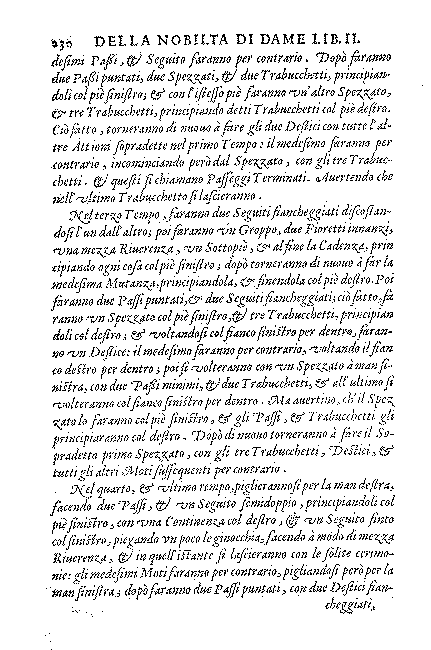 230 DELLA NOBILTA DI DAME LIB. II.
desimi Passi, & Seguito faranno per contrario. Dopò faranno
due Passi puntati, due Spezzati, & due Trabucchetti, principian-
doli col piè sinistro; & con l'istesso piè faranno un'altro Spezzato,
& tre Trabucchetti, principiando detti Trabucchetti col piè destro.
Ciò fatto, torneranno di nuovo à fare gli due Destici con tutte l'al-
tre Attioni sopradette nel primo Tempo: il medesimo faranno per
contrario, incominciando però dal Spezzato, con gli tre Trabuc-
chetti. & questi si chiamano Passeggi Terminati. Avertendo che
nell'ultimo Trabuchetto si lascieranno.
Nel terzo Tempo, faranno due Seguiti fiancheggiati discostan-
dosi l'un dall'altro; poi faranno un Groppo, due Fioretti innanzi,
una mezza Riverenza, un Sottopiè, & al fine la Cadenza, prin
cipiando ogni cosa col piè sinistro; dopò torneranno di nuovo à far la
medesima Mutanza, principiandola, & finendola col piè destro. Poi
faranno due Passi puntati, & due Seguiti fiancheggiati; ciò fatto, fa
ranno un Spezzato col piè sinistro, & tre Trabucchetti, principian
doli col destro; & voltandosi col fianco sinistro per dentro, faran-
no un Destice: il medesimo faranno per contrario, voltando il fian
co destro per dentro; poi si volteranno con un Spezzato à man si-
nistra, con due Passi minimi, & due Trabucchetti, & all'ultimo si
volteranno col fianco sinistro per dentro. Ma avertino, ch'il Spez
zato lo faranno col piè sinistro, & gli Passi, & Trabucchetti gli
principiaranno col destro. Dopò di nuovo torneranno à fare il So-
pradetto primo Spezzato, con gli tre Trabucchetti, Destici, &
tutti gli altri Moti sussequenti per contrario.
Nel quarto, & ultimo tempo, piglierannosi per la man destra,
facendo due Passi, & un Seguito semidoppio, principiandoli col
piè sinistro, con una Continenza col destro, & un Seguito finto
col sinistro, piegando un poco le ginocchia, facendo à modo di mezza
Riverenza, & in quell'istante si lascieranno con le solite cerimo-
nie: gli medesimi Moti faranno per contrario, pigliandosi però per la
man sinistra; dopò faranno due Passi puntati, con due Destici fian-
cheggiati,